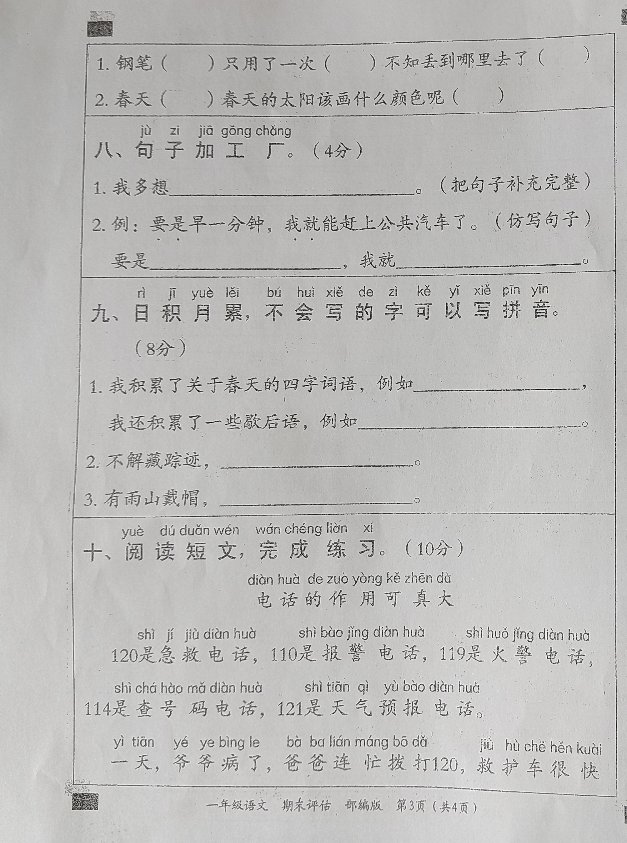 1. 钢笔（ ）只用了一次（ ）不知丢到哪里去了（ ）
2. 春天（ ）春天的太阳该画什么颜色呢（ ）
jù zi jiā gōng chǎng
八、句子加工厂。（4分）
1. 我多想____________________。（把句子补充完整）
2. 例：要是早一分钟，我就能赶上公共汽车了。（仿写句子）
要是____________________，我就____________________。
rì jī yuè lěi bú huì xiě de zì kě yǐ xiě pīn yīn
九、日积月累，不会写的字可以写拼音。
（8分）
1. 我积累了关于春天的四字词语，例如____________________，
我还积累了一些歇后语，例如____________________。
2. 不解藏踪迹，____________________。
3. 有雨山戴帽，____________________。
yuè dú duǎn wén wán chéng liàn xí
十、阅读短文，完成练习。（10分）
diàn huà de zuò yòng kě zhēn dà
电话的作用可真大
shì jí jiù diàn huà shì bào jǐng diàn huà shì huǒ jǐng diàn huà
120是急救电话，110是报警电话，119是火警电话，
shì chá hào mǎ diàn huà shì tiān qì yù bào diàn huà
114是查号码电话，121是天气预报电话。
yì tiān yé ye bìng le bà ba lián máng bō dǎ jiù hù chē hěn kuài
一天，爷爷病了，爸爸连忙拨打120，救护车很快
一年级语文 期末评估 部编版 第3页（共4页）